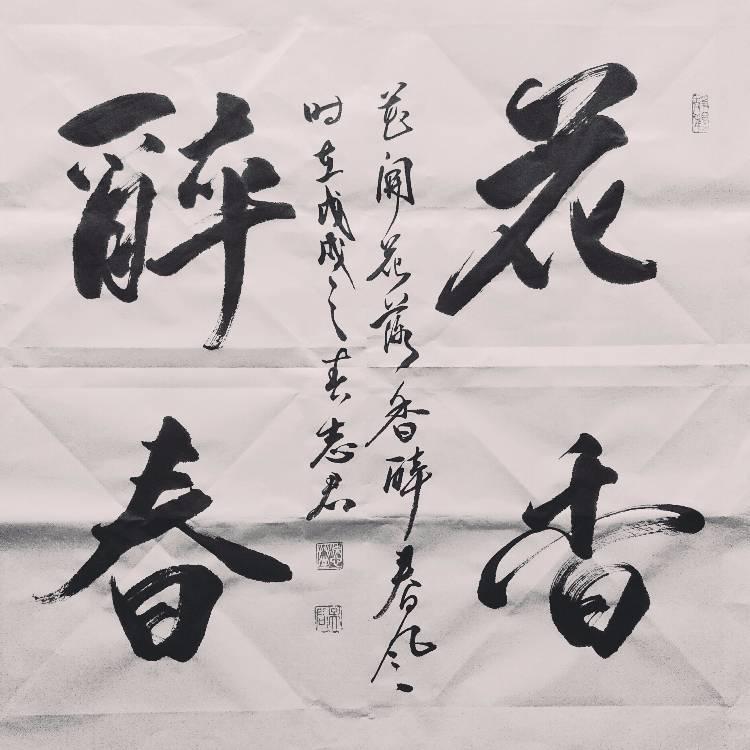 花香
醉春
花開花落香醉春风
时在戊戌之春志君